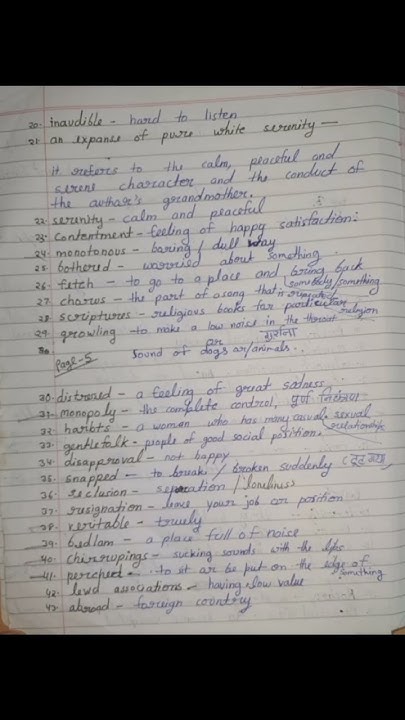 20. inaudible - hard to listen
21. an expanse of pure white serenity -
it refers to the calm, peaceful and
serene character and the conduct of
the author's grandmother.
22. serenity - calm and peaceful
23. Contentment - feeling of happy satisfaction.
24. monotonous - boring / dull way
25. bothered - worried about something
26. fetch - to go to a place and bring back
somebody/something
27. chorus - the part of a song that is repeated
28. scriptures - religious books for particular
religion
29. growling - to make a low noise in the throat
गुर्राना
or
sound of dogs or/animals.
30
Page-5
30. distressed - a feeling of great sadness
31. monopoly - the complete control, पूर्ण नियंत्रण
32. harlots - a woman who has many casual sexual
relationship
33. gentlefolk - people of good social position.
34. disapproval - not happy
35. snapped - to break / broken suddenly (टूट
36. reclusion - separation / loneliness
37. resignation - leave your job or position
38. veritable - truely
39. bedlam - a place full of noise
40. chirrupings - sucking sounds with the lips
41. perched - to sit or be put on the edge of
something
42. lewd associations - having low value
43. abroad - foreign country